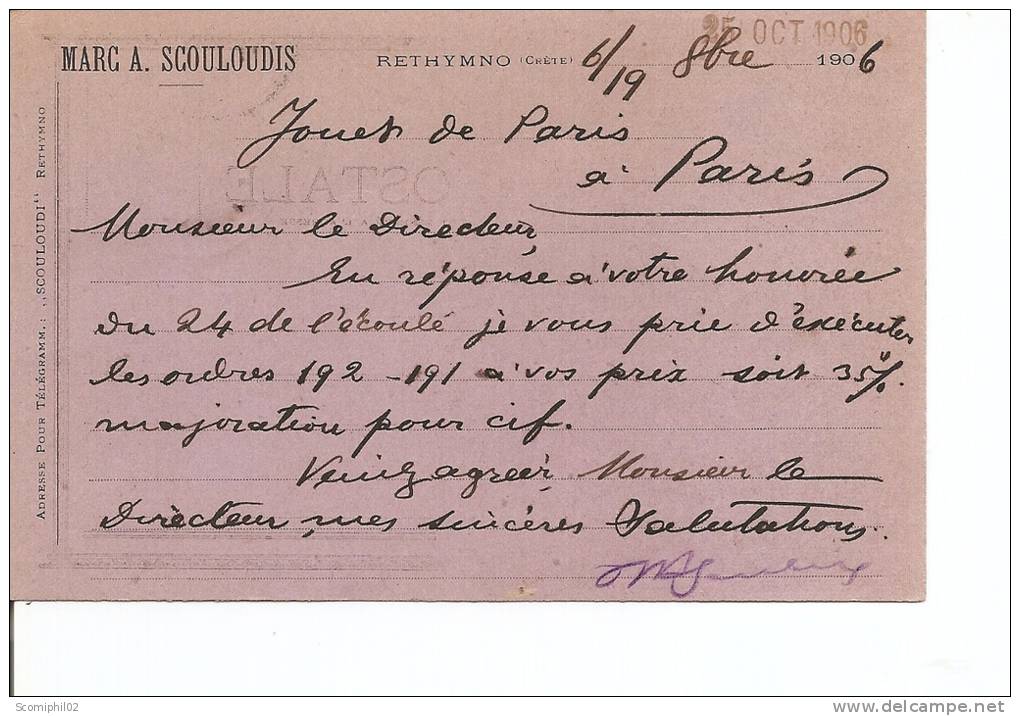 25 OCT 1906
MARC A. SCOULOUDIS
RETHYMNO (CRÈTE) 6/19 8bre 1906
Jouet de Paris
à Paris
OSTALE
Monsieur le Directeur,
En réponse à votre honorée
du 24 de l'écoulé je vous prie d'exécuter
les ordres 192 - 191 à vos prix soit 35%
majoration pour cif.
Veuillez agréer, Monsieur le
Directeur, mes sincères Salutations.
ADRESSE POUR TÉLÉGRAMM.: „SCOULOUDI" RETHYMNO
Scomiphil02